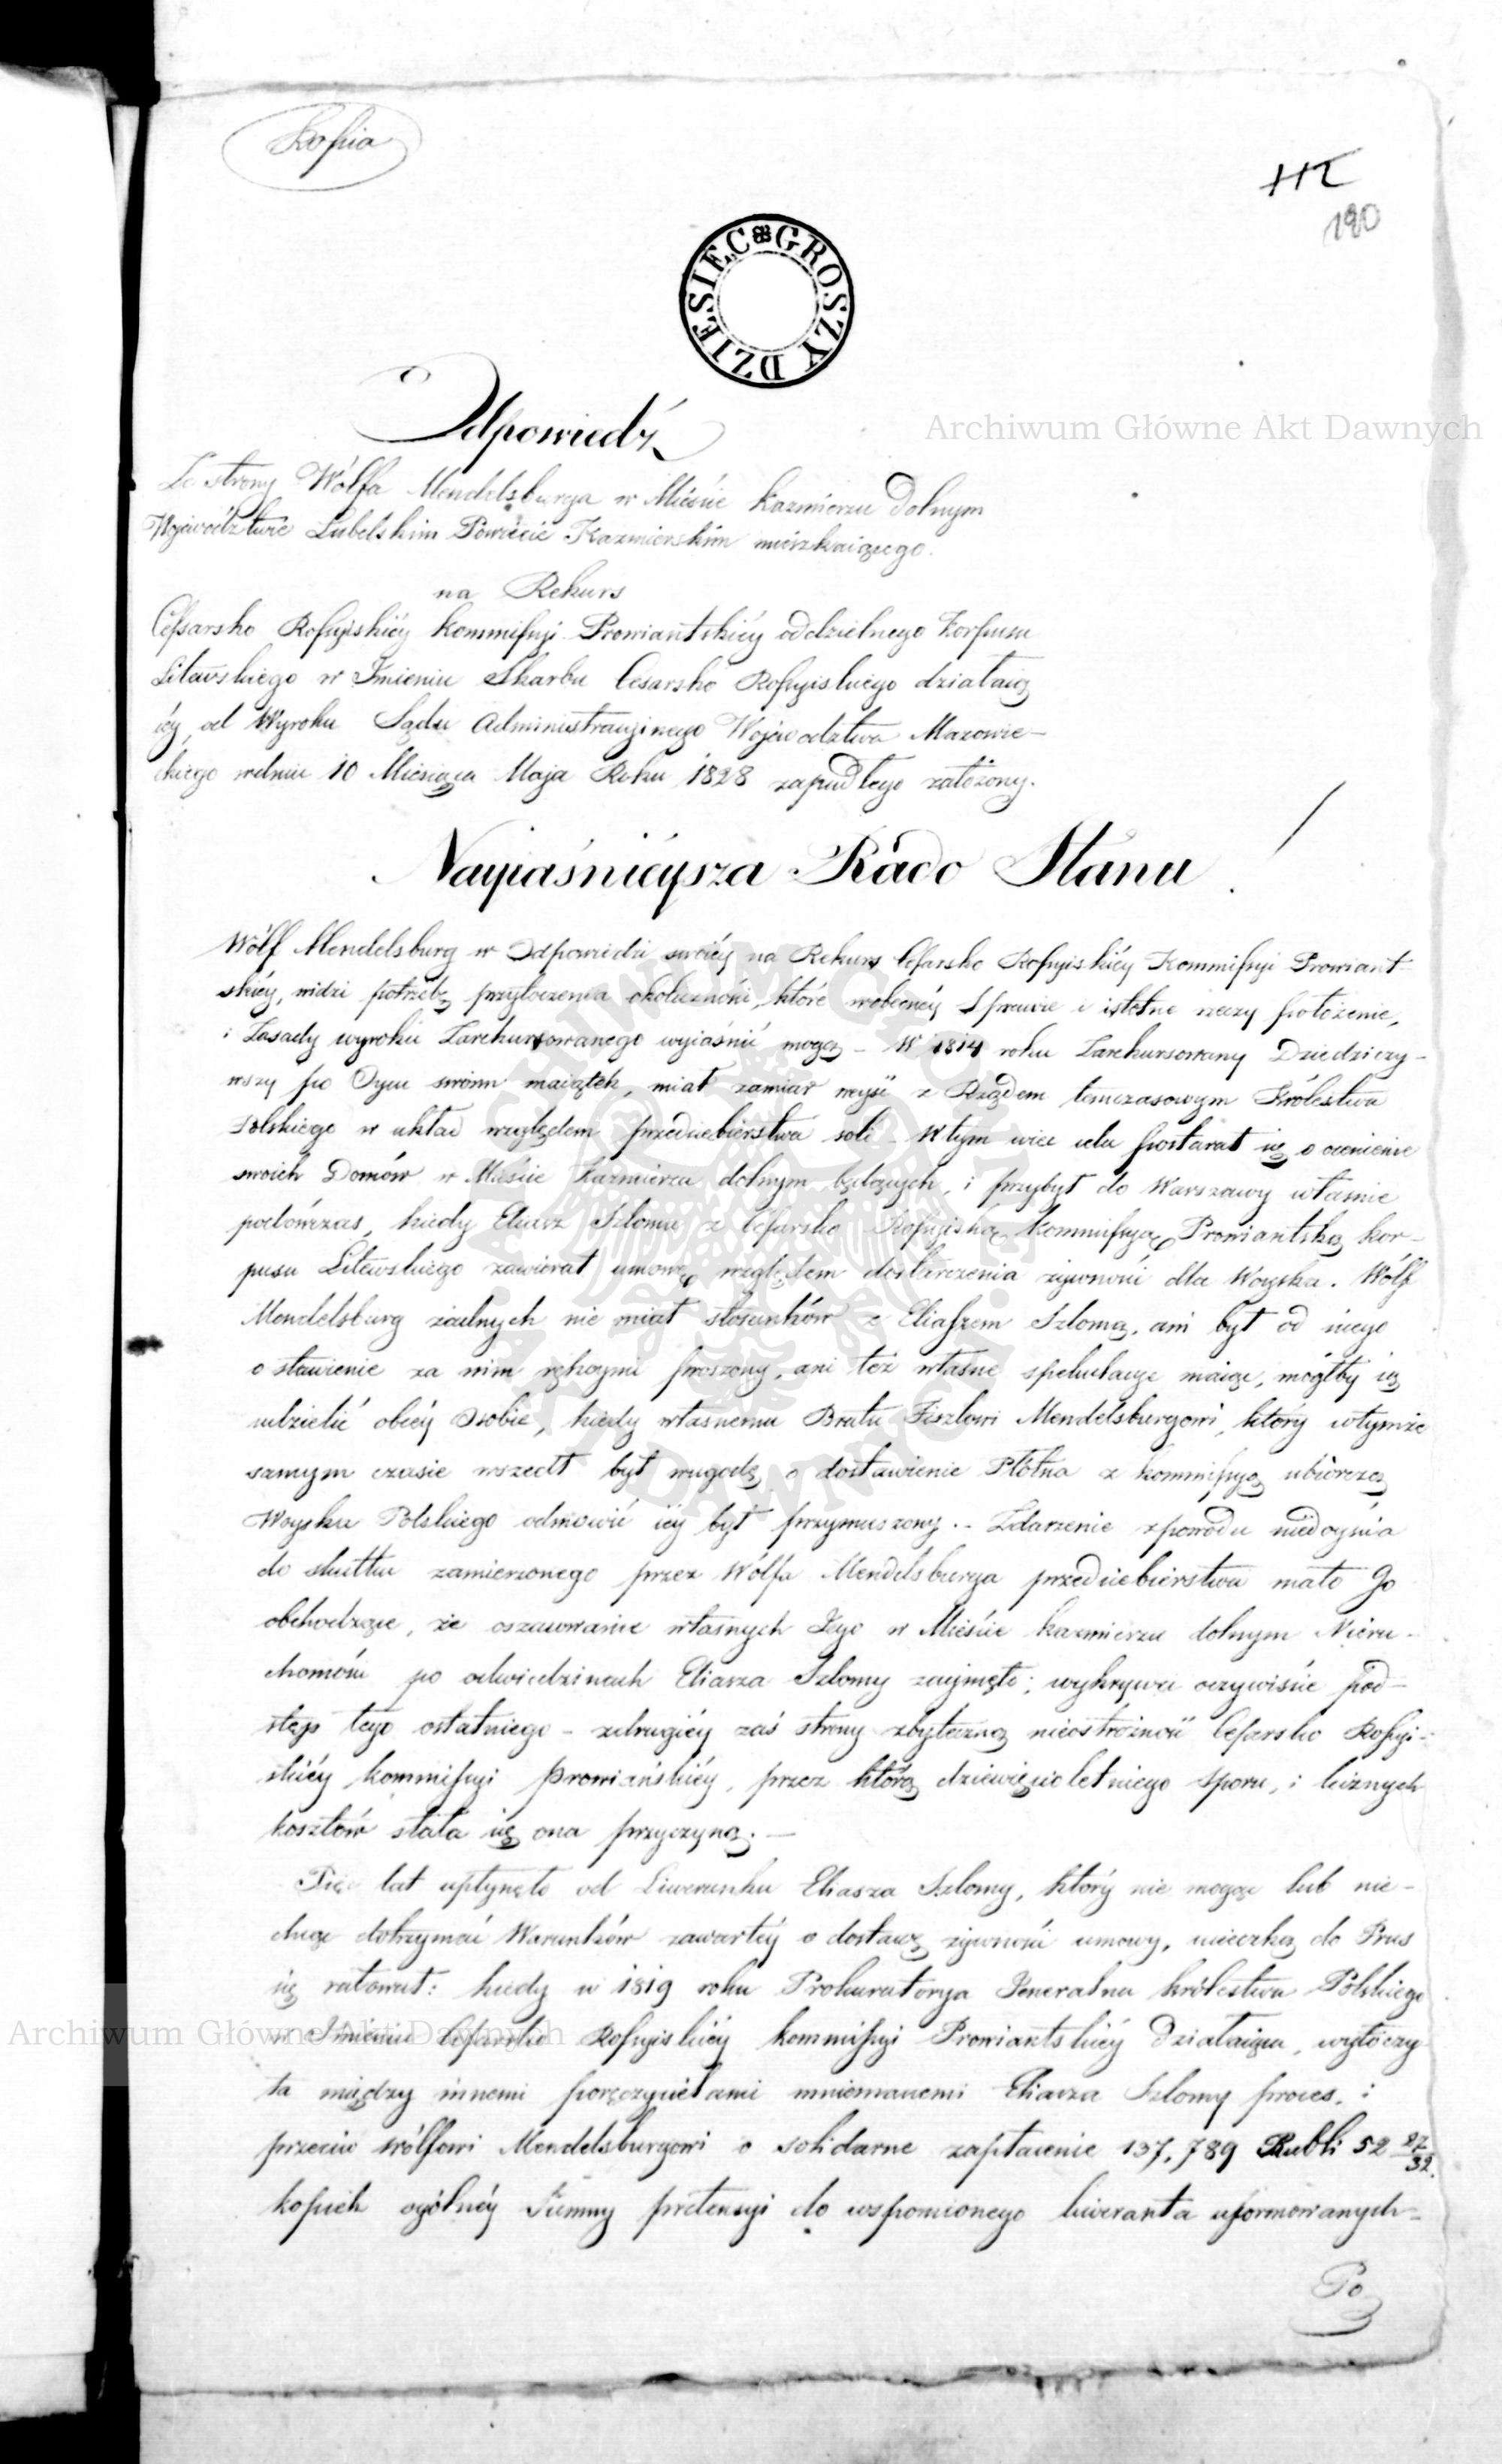 Kopia
112
190
DZIESIĘC GROSZY
Archiwum Główne Akt Dawnych
Odpowiedź
Ze strony Wólfa Mendelsburga w Mieście Kazmierzu Dolnym
Województwie Lubelskim Powiecie Kazmierskim mieszkaiącego.
na Rekurs
Cessarsko Rossyiskiéy Kommissyi Prowiantskiéy oddzielnego Korpusu
Litewskiego w Imieniu Skarbu Cesarsko Rossyiskiego działaią
céy, od Wyroku Sądu Administracyinego Województwa Mazowie-
ckiego w dniu 10 Miesiąca Maja Roku 1828 zapadłego założony.
Nayiaśnieysza Rado Stanu !
Wólf Mendelsburg w Odpowiedzi swoiéy na Rekurs Cessarsko Rossyiskiéy Kommissyi Prowiant-
skiéy, widzi potrzebę przytoczenia okoliczności, któré w obecnéy Sprawie i istotne rzeczy położenie,
i Zasady wyroku Zarekursowanego wyiaśnić mogą – W 1814 roku Zarekursowany Dziedziczy-
wszy po Oycu swoim maiątek, miał zamiar weyść z Rządem tymczasowym Królestwa
Polskiego w układ względem przedsiebierstwa soli – W tym więc celu postarał się o ocenienie
swoich Domów w Mieście Kazmierzu dolnym będących, i przybył do Warszawy właśnie
podówczas, kiedy Eliasz Szloma z Cessarsko Rossyiską Kommissyą Prowiantską Kor-
pusu Litewskiego zawierał umowę względem dostarczenia żywności dla Woyska. Wólf
Mendelsburg żadnych nie miał stosunków z Eliaszem Szlomą, ani był od niego
o stawienie za nim rękoymi proszony, ani też własne spekulacye maiąc, mógłby ią
udzielić obcéy Osobie, kiedy własnemu Bratu Fiszlowi Mendelsburgowi, który w tymże
samym czasie wszedł był w ugodę o dostawienie Płótna z kommissyą ubiorczą
Woyska Polskiego odmówić iéy był przymuszony. – Zdarzenie z powodu niedoyścia
do skutku zamierzonego przez Wólfa Mendelsburga przedsiebierstwa mało Go
obchodzące, że oszacowanie własnych Jego w Mieście Kazmierzu dolnym Nieru-
chomości po odwiedzinach Eliasza Szlomy zaginęło; wykrywa oczywiście pod-
stęp tego ostatniego – z drugiéy zaś strony zbyteczną nieostrożność Cessarsko Rossyi-
skiéy Kommissyi Prowiańskiéy, przez którą dziewięcioletniego sporu, i licznych
kosztów stała się ona przyczyną. –
Pięć lat upłynęło od Liwerunku Eliasza Szlomy, który nie mogąc lub nie-
chcąc dotrzymać Warunków zawartéy o dostawę żywności umowy, ucieczką do Prus
się ratował: kiedy w 1819 roku Prokuratorya Jeneralna Królestwa Polskiego
w Imieniu Cessarsko Rossyiskiéy Kommissyi Prowiantskiéy Działaiąca, wytoczy
Archiwum Główne Akt Dawnych
ła między innemi poręczycielami mniemanemi Eliasza Szlomy proces, i
przeciw Wólfowi Mendelsburgowi o solidarne zapłacenie 137,789 Rubli 52 27/32
kopiek ogólnéy Summy pretensyi do wspomionego liweranta uformowanych –
Po